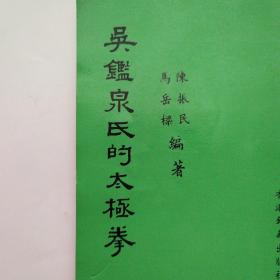 吳鑑泉氏的太極拳
陳振民
馬岳樑
編著